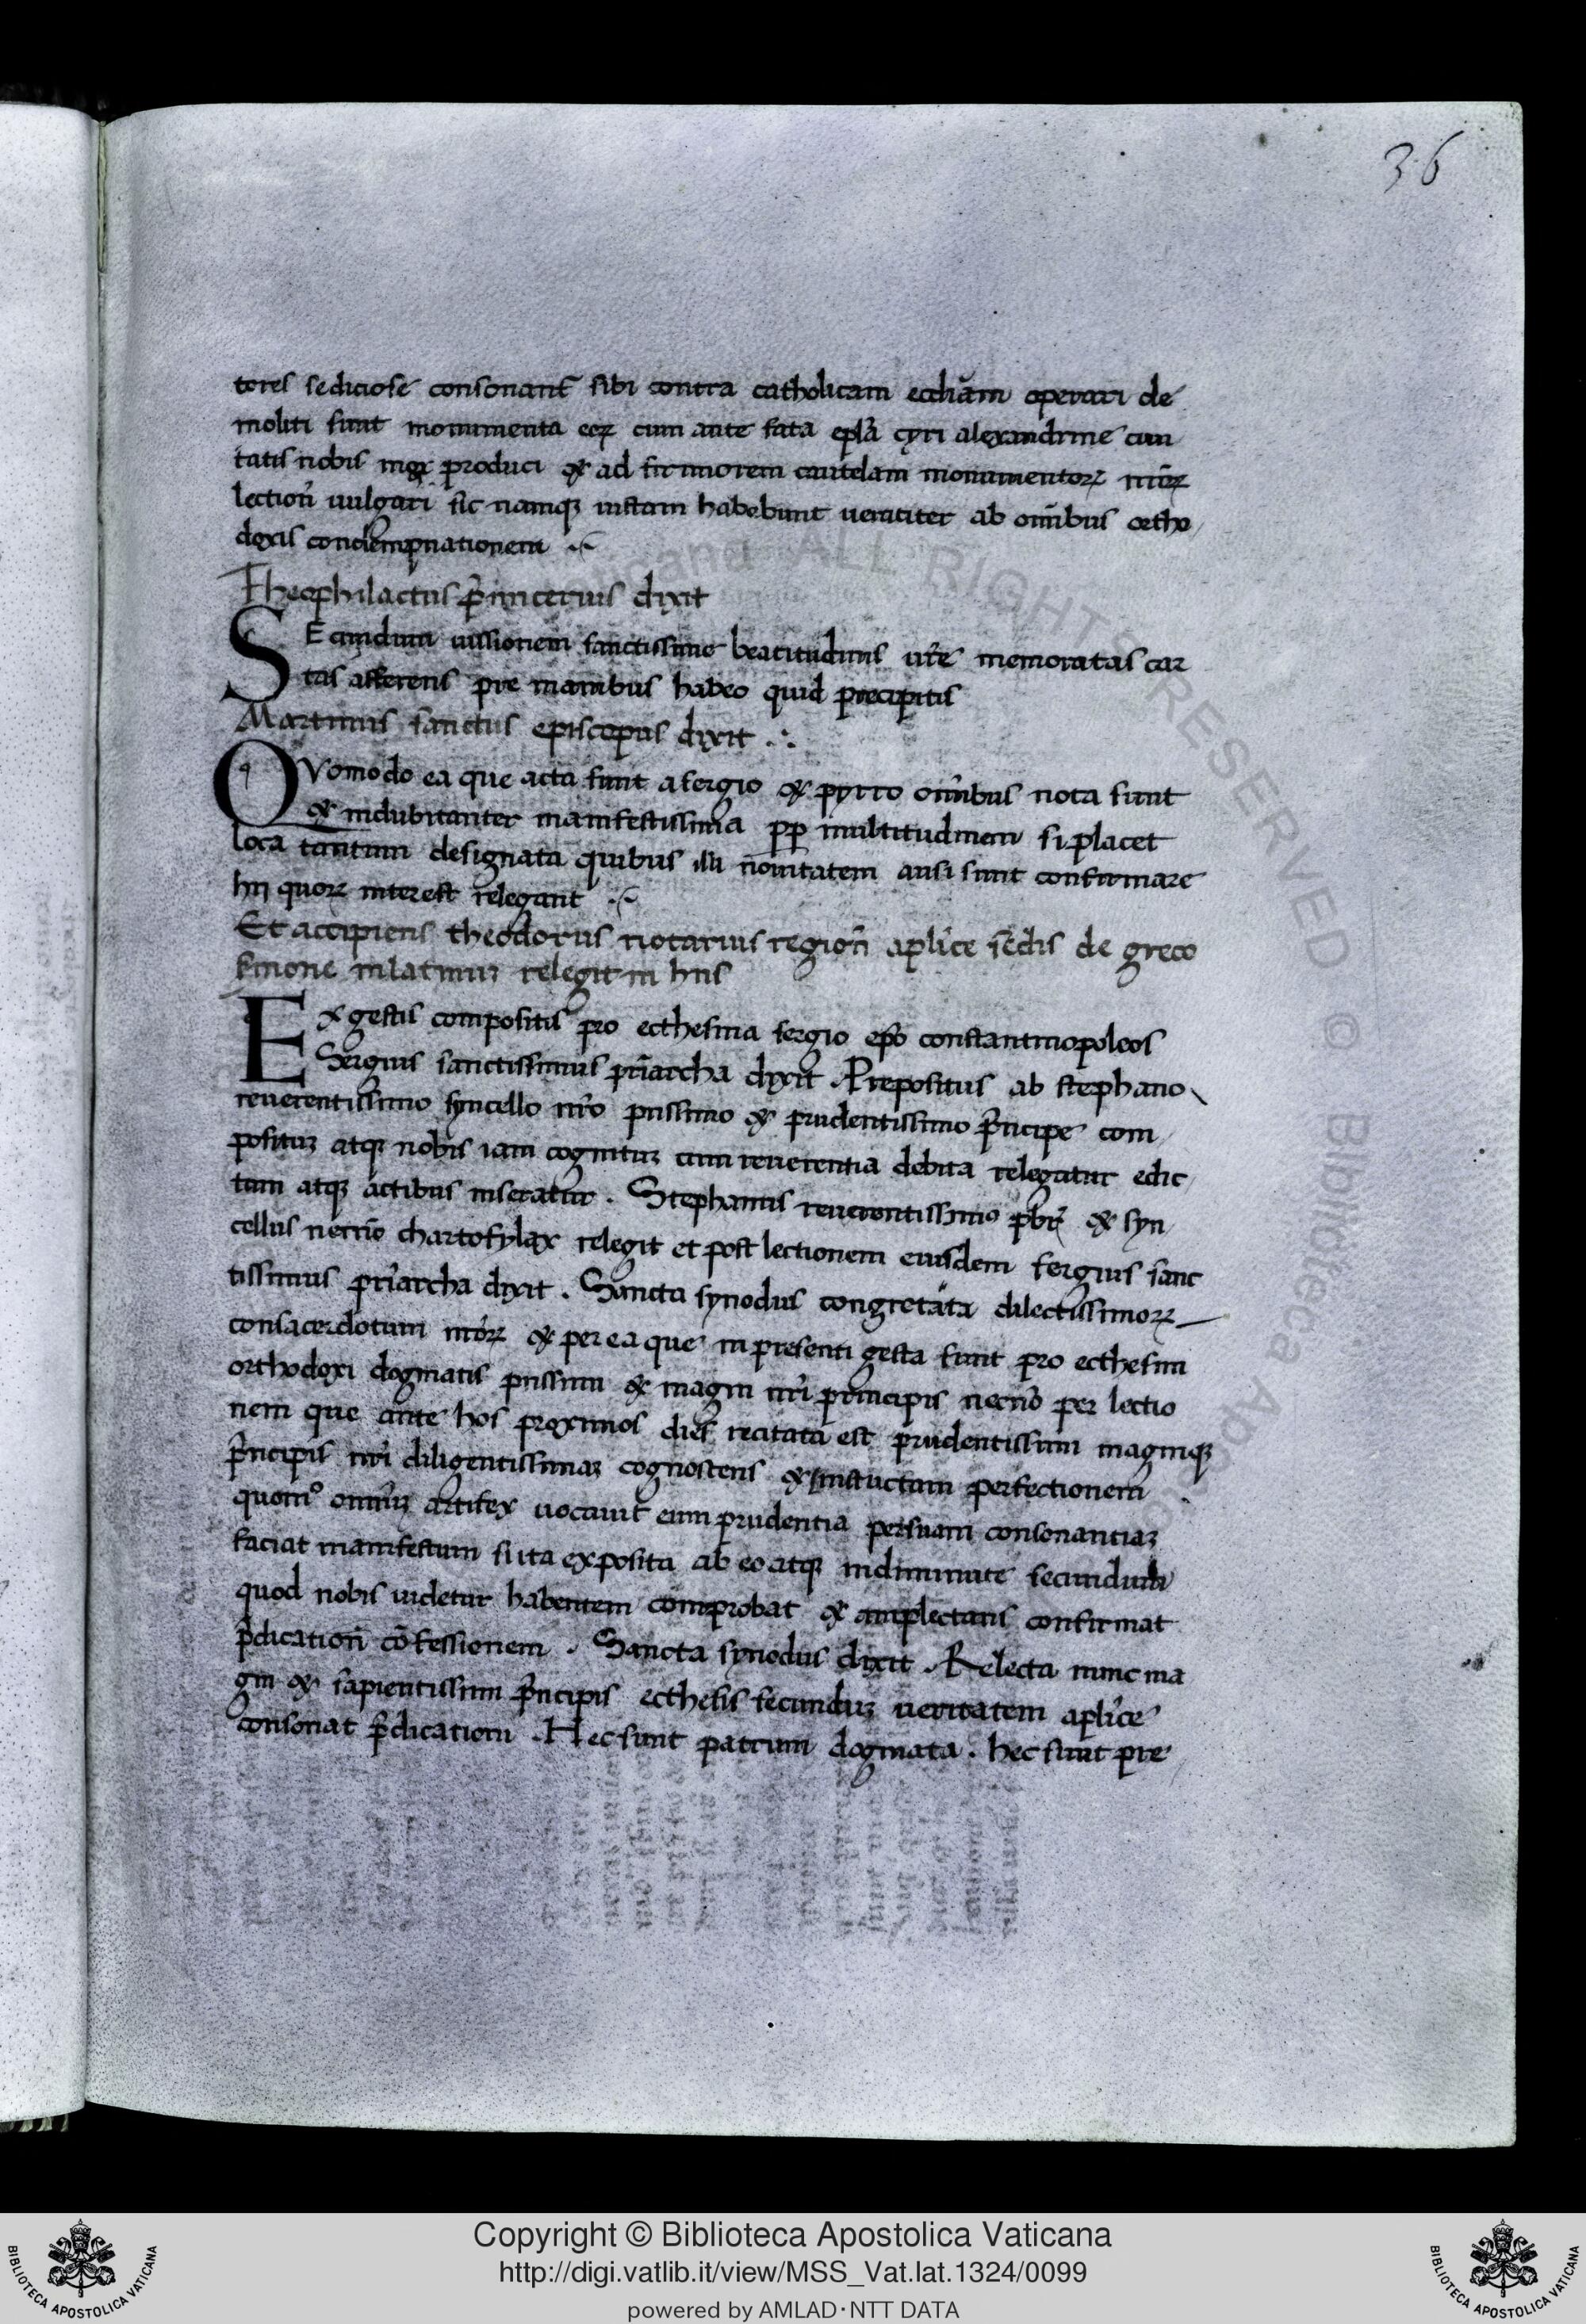 36
tores sediciose consonant̄ sibi contra catholicam eccliam operari de
moliti sunt monumenta eoꝝ cum ante fata epl̄a cyri alexandrine ciui
tatis nobis produci & ad firmiorem cautelam monumentoꝝ
lection̄ uulgari sic namqꝫ iustam habebunt ueraciter ab omībus ortho
doxis condempnationem
Theophilactus p̄rimicerius dixit
SEcundum iussionem sanctissime beatitudinis ur̄e memoratas car
tas afferens pre manibus habeo quid precipitis
Martinus sanctus episcopus dixit
QVomodo ea que acta sunt a sergio & pyrro omībus nota sunt
& indubitanter manifestissima pp̄ multitudinem si placet
loca tantum designata quibus illi nouitatem ausi sunt confirmare
hii quoꝝ interest relegant
Et accipiens theodorus notarius region̄ aplice sedis de greco
sermone in latinuꝫ relegit in hiis
Ex gestis compositis pro ecthesina sergio epō constantinopoleos
Sergius sanctissimus priarcha dixit. Prepositus ab stephano
reuerentissimo syncello nr̄o piissimo & prudentissimo p̄ncipe com
posituꝫ atqꝫ nobis iam cognituꝫ cum reuerentia debita relegatur edic
tum atqꝫ actibus inseratur. Stephanus reuerentissimꝰ pbr̄ & syn
cellus necnō chartofylax relegit et post lectionem eiusdem sergius sanc
tissimus priarcha dixit. Sancta synodus congregata dilectissimoꝝ
consacerdotum nr̄oꝝ & per ea que in presenti gesta sunt pro ecthesin
orthodoxi dogmatis piissimi & magni nr̄i principis necnō per lectio
nem que ante hos proximos dies recitata est prudentissimi magniqꝫ
p̄ncipis nr̄i diligentissimaꝫ cognoscens & perfectionem
quomº omniuꝫ artifex uocauit eum prudentia per suam consonantiaꝫ
faciat manifestum si ita exposita ab eo atqꝫ indiminute secundum
quod nobis uidetur habentem comprobat & amplectans confirmat
p̄dication̄ cōfessionem. Sancta synodus dixit. Relecta nunc ma
gni & sapientissimi p̄ncipis ecthesis secunduꝫ ueritatem aplice
consonat p̄dicationi. Hec sunt patrum dogmata. hec sunt pre
Copyright © Biblioteca Apostolica Vaticana
http://digi.vatlib.it/view/MSS_Vat.lat.1324/0099
powered by AMLAD·NTT DATA
BIBLIOTECA APOSTOLICA VATICANA
BIBLIOTECA APOSTOLICA VATICANA